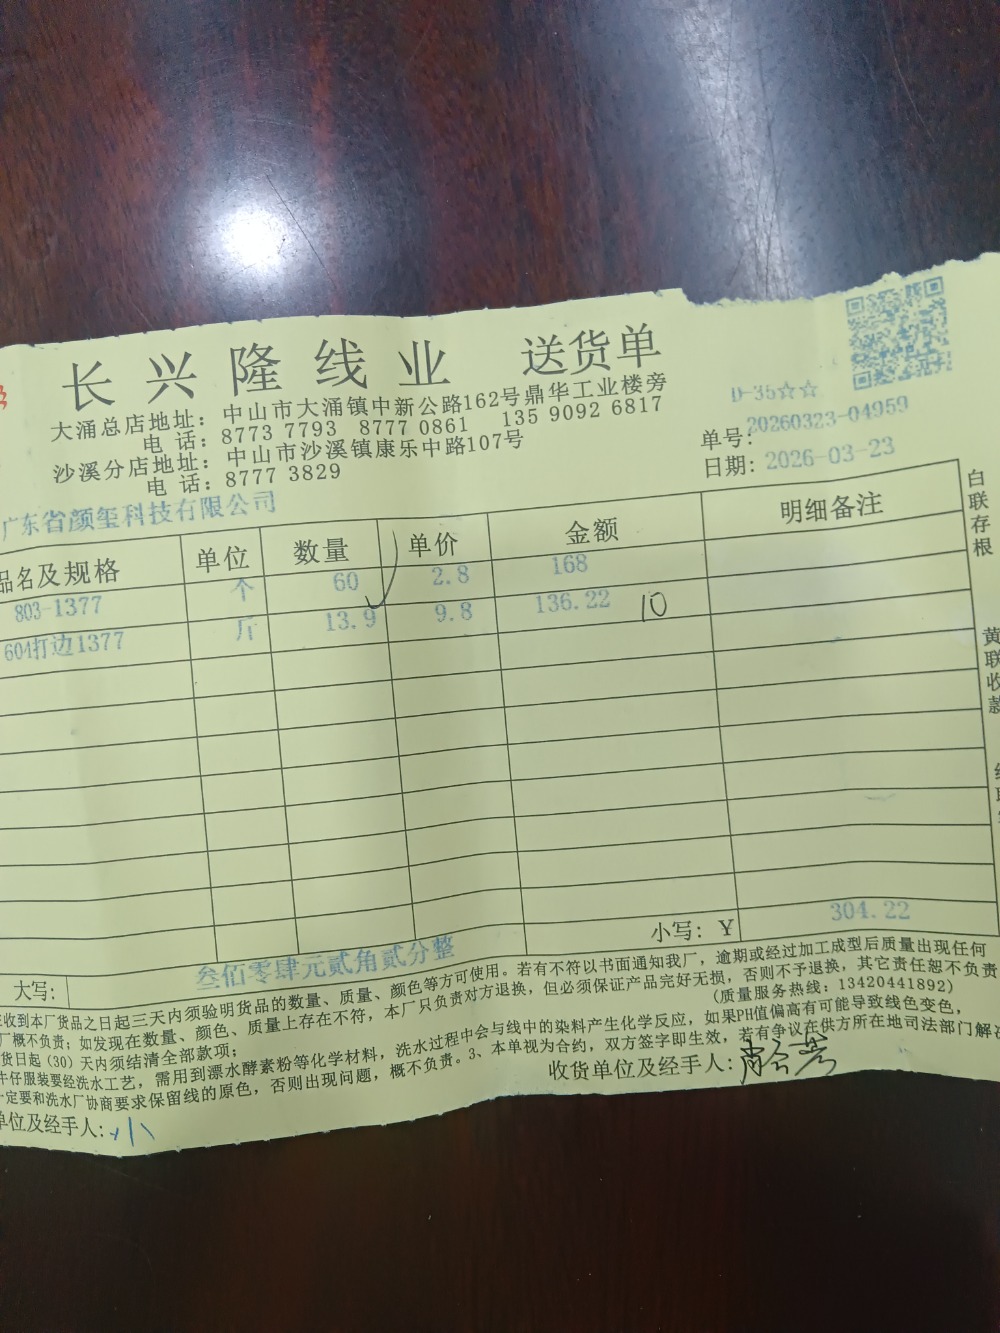 长兴隆线业 送货单
大涌总店地址：中山市大涌镇中新公路162号鼎华工业楼旁
电话：8773 7793 8777 0861 135 9092 6817
沙溪分店地址：中山市沙溪镇康乐中路107号
电话：8777 3829
D-35☆☆
单号：20260323-04959
日期：2026-03-23
广东省颜玺科技有限公司
品名及规格 单位 数量 单价 金额 明细备注
803-1377 个 60 2.8 168
604打边1377 斤 13.9 9.8 136.22 10
小写：￥ 304.22
大写： 叁佰零肆元贰角贰分整
收到本厂货品之日起三天内须验明货品的数量、质量、颜色等方可使用。若有不符以书面通知我厂，逾期或经过加工成型后质量出现任何
厂概不负责；如发现在数量、颜色、质量上存在不符，本厂只负责对方退换，但必须保证产品完好无损，否则不予退换，其它责任恕不负责
（质量服务热线：13420441892）
货日起（30）天内须结清全部款项；
牛仔服装要经洗水工艺，需用到漂水酵素粉等化学材料，洗水过程中会与线中的染料产生化学反应，如果PH值偏高有可能导致线色变色，
定要和洗水厂协商要求保留线的原色，否则出现问题，概不负责。3、本单视为合约，双方签字即生效，若有争议在供方所在地司法部门解决
单位及经手人：
收货单位及经手人：
白联存根
黄联收款